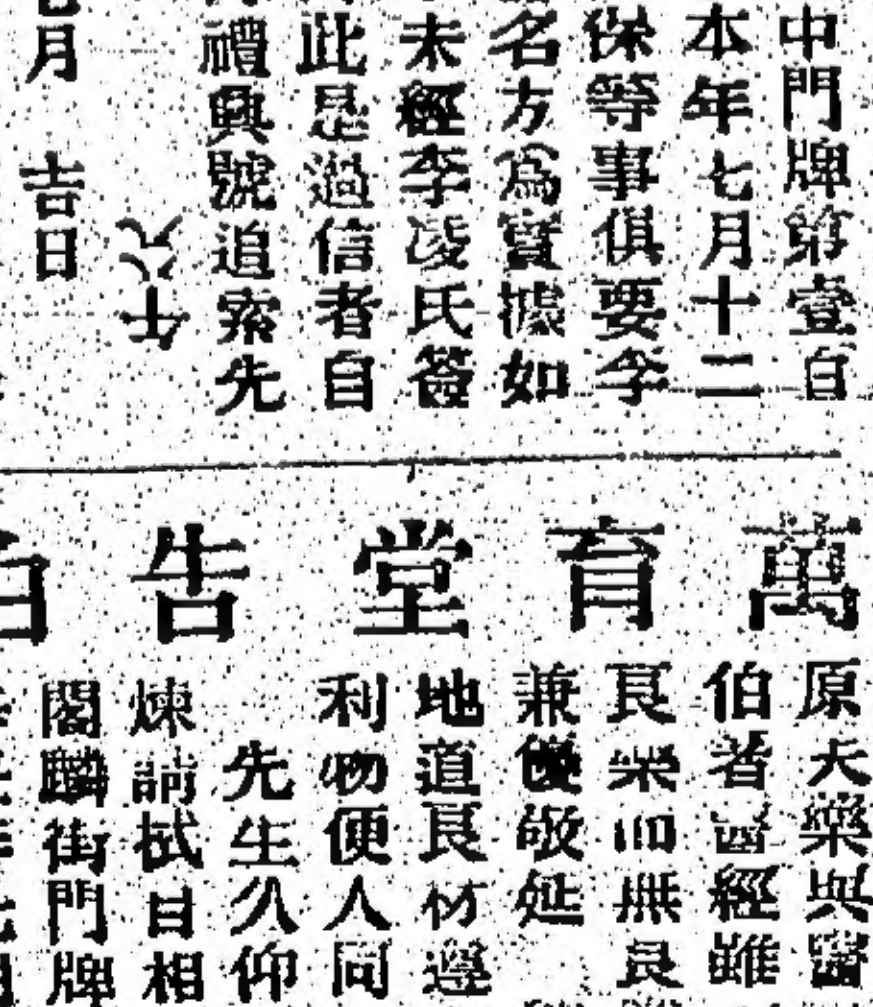 中門牌第壹自
本年七月十二
保等事俱要李
名方為實據如
未經李凌氏簽
此是過信者自
禮興號追索先
午
月吉日
萬育堂告白
原夫藥與醫
伯著醫經雖
良藥而無良
兼優敬延
地道良材遵
利物便人同
先生久仰
煉請拭目相
閣麟街門牌